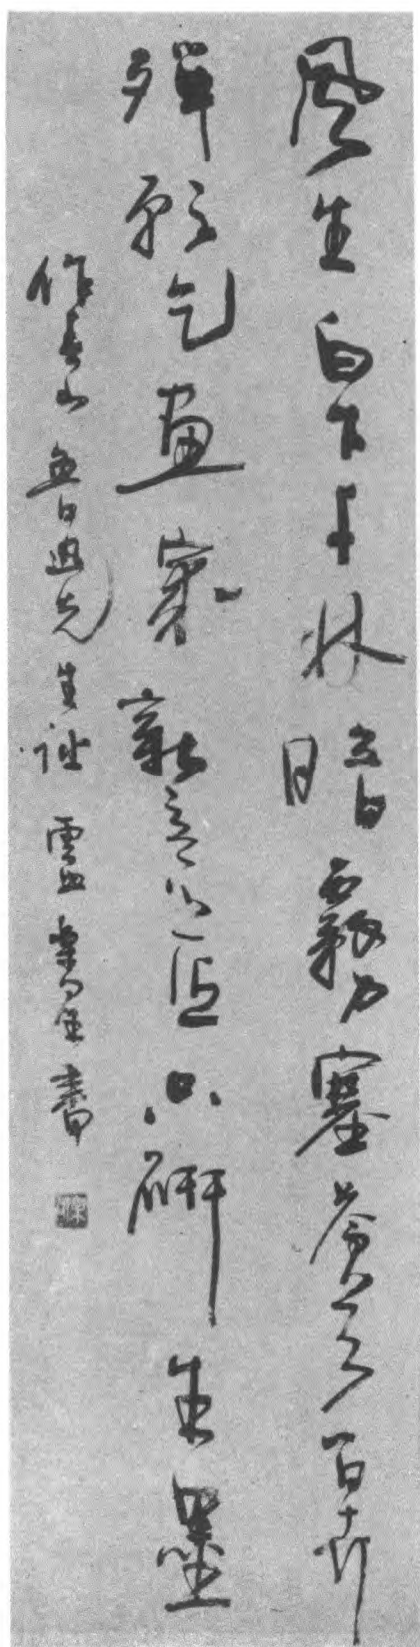 風生白下千林暗霧塞蒼天百卉
殫願乞畫家新意匠只研朱墨
作春山 魯迅先生詩 雪 書